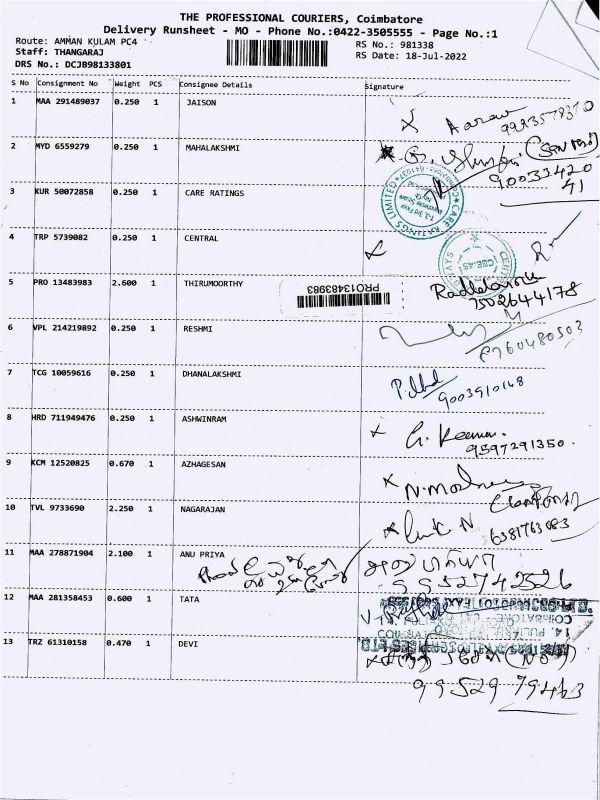 THE PROFESSIONAL COURIERS, Coimbatore
Delivery Runsheet - MO - Phone No.:0422-3505555 - Page No.:1
Route: AMMAN KULAM PC4
RS No.: 981338
Staff: THANGARAJ
RS Date: 18-Jul-2022
DRS No.: DCJB98133801
S No Consignment No Weight PCS Consignee Details Signature
1 MAA 291489037 0.250 1 JAISON
2 MYD 6559279 0.250 1 MAHALAKSHMI
90033420
41
3 KUR 50072858 0.250 1 CARE RATINGS
CARE RATINGS LIMITED
4 TRP 5739082 0.250 1 CENTRAL
5 PRO 13483983 2.600 1 THIRUMOORTHY
PRO13483983
7502644178
6 VPL 214219892 0.250 1 RESHMI
8760480503
7 TCG 10059616 0.250 1 DHANALAKSHMI
9003910148
8 HRD 711949476 0.250 1 ASHWINRAM
9597291350
9 KCM 12520825 0.670 1 AZHAGESAN
10 TVL 9733690 2.250 1 NAGARAJAN
6381763083
11 MAA 278871904 2.100 1 ANU PRIYA
அனுபிரியா
9952742526
12 MAA 281358453 0.600 1 TATA
13 TRZ 61310158 0.470 1 DEVI
9952979463